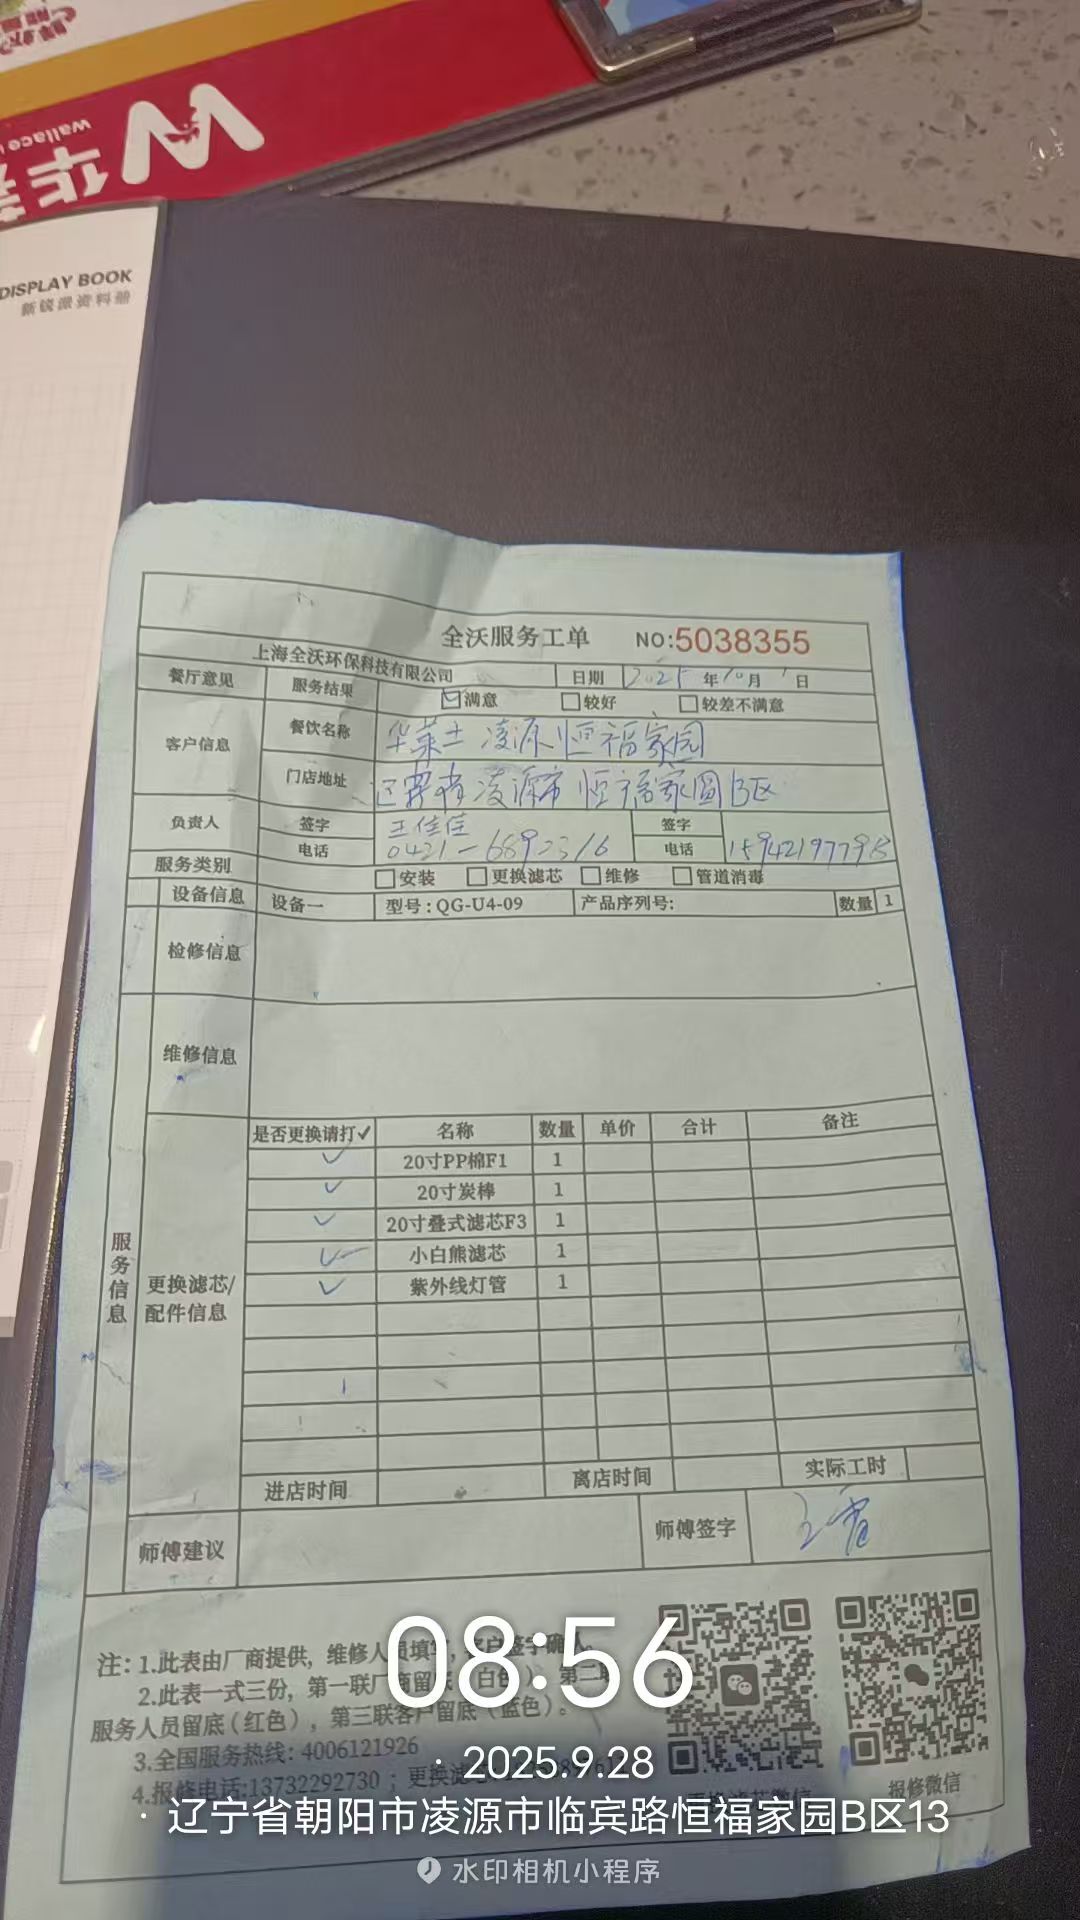 wallace
华
DISPLAY BOOK
新锐派资料册
全沃服务工单 NO:5038355
上海全沃环保科技有限公司 日期 2025年10月1日
餐厅意见 服务结果 满意 较好 较差不满意
客户信息 餐饮名称 华莱士凌源恒福家园
门店地址 辽宁省凌源市恒福家园B区
负责人 签字 王佳佳 签字
电话 0421-6892316 电话
服务类别 安装 更换滤芯 维修 管道消毒
设备信息 设备一 型号:QG-U4-09 产品序列号: 数量 1
检修信息
维修信息
服务信息
更换滤芯/配件信息
是否更换请打✓ 名称 数量 单价 合计 备注
✓ 20寸PP棉F1 1
✓ 20寸炭棒 1
✓ 20寸叠式滤芯F3 1
✓ 小白熊滤芯 1
✓ 紫外线灯管 1
进店时间 离店时间 实际工时
师傅建议 师傅签字
注:1.此表由厂商提供,维修人员填写,客户签字确认。
2.此表一式三份,第一联厂商留底(白色),第二联
服务人员留底(红色),第三联客户留底(蓝色)。
3.全国服务热线:4006121926
4.报修电话:13732292730;更换滤
报修微信
08:56
2025.9.28
辽宁省朝阳市凌源市临宾路恒福家园B区13
水印相机小程序